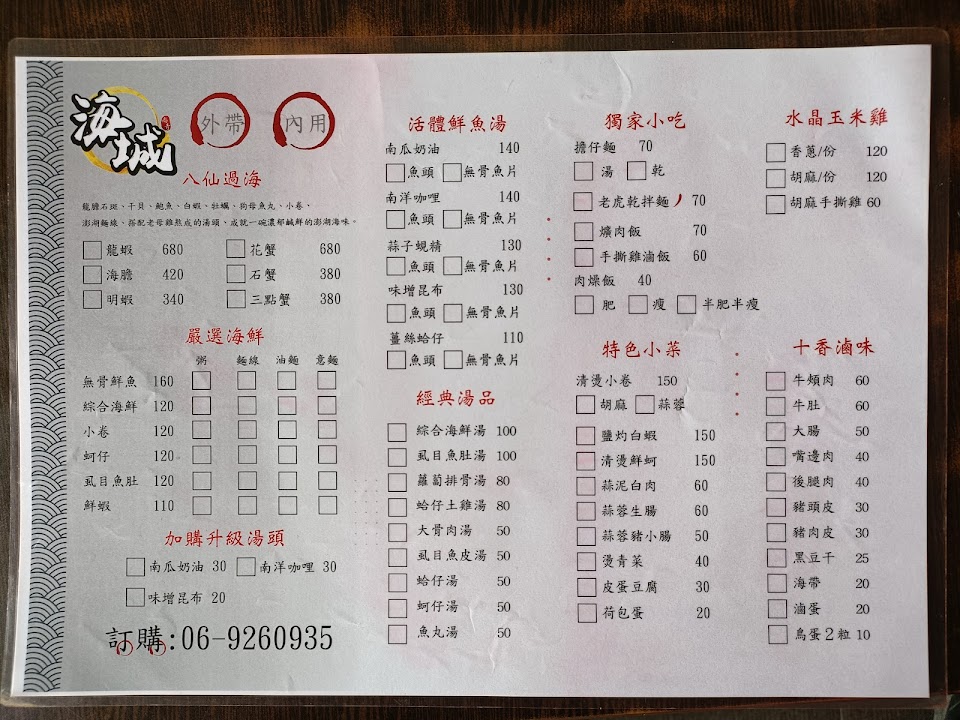 海城
外帶
內用
八仙過海
龍膽石斑、干貝、鮑魚、白蝦、牡蠣、狗母魚丸、小卷、
澎湖麵線、搭配老母雞熬成的湯頭、成就一碗濃郁鹹鮮的澎湖海味。
龍蝦 680 花蟹 680
海膽 420 石蟹 380
明蝦 340 三點蟹 380
嚴選海鮮
粥 麵線 油麵 意麵
無骨鮮魚 160
綜合海鮮 120
小卷 120
蚵仔 120
虱目魚肚 120
鮮蝦 110
加購升級湯頭
南瓜奶油 30 南洋咖哩 30
味增昆布 20
訂購:06-9260935
活體鮮魚湯
南瓜奶油 140
魚頭 無骨魚片
南洋咖哩 140
魚頭 無骨魚片
蒜子蜆精 130
魚頭 無骨魚片
味增昆布 130
魚頭 無骨魚片
薑絲蛤仔 110
魚頭 無骨魚片
經典湯品
綜合海鮮湯 100
虱目魚肚湯 100
蘿蔔排骨湯 80
蛤仔土雞湯 80
大骨肉湯 50
虱目魚皮湯 50
蛤仔湯 50
蚵仔湯 50
魚丸湯 50
獨家小吃
擔仔麵 70
湯 乾
老虎乾拌麵 70
爌肉飯 70
手撕雞滷飯 60
肉燥飯 40
肥 瘦 半肥半瘦
特色小菜
清燙小卷 150
胡麻 蒜蓉
鹽灼白蝦 150
清燙鮮蚵 150
蒜泥白肉 60
蒜蓉生腸 60
蒜蓉豬小腸 50
燙青菜 40
皮蛋豆腐 30
荷包蛋 20
水晶玉米雞
香蔥/份 120
胡麻/份 120
胡麻手撕雞 60
十香滷味
牛頰肉 60
牛肚 60
大腸 50
嘴邊肉 40
後腿肉 40
豬頭皮 30
豬肉皮 30
黑豆干 25
海帶 20
滷蛋 20
鳥蛋2粒 10